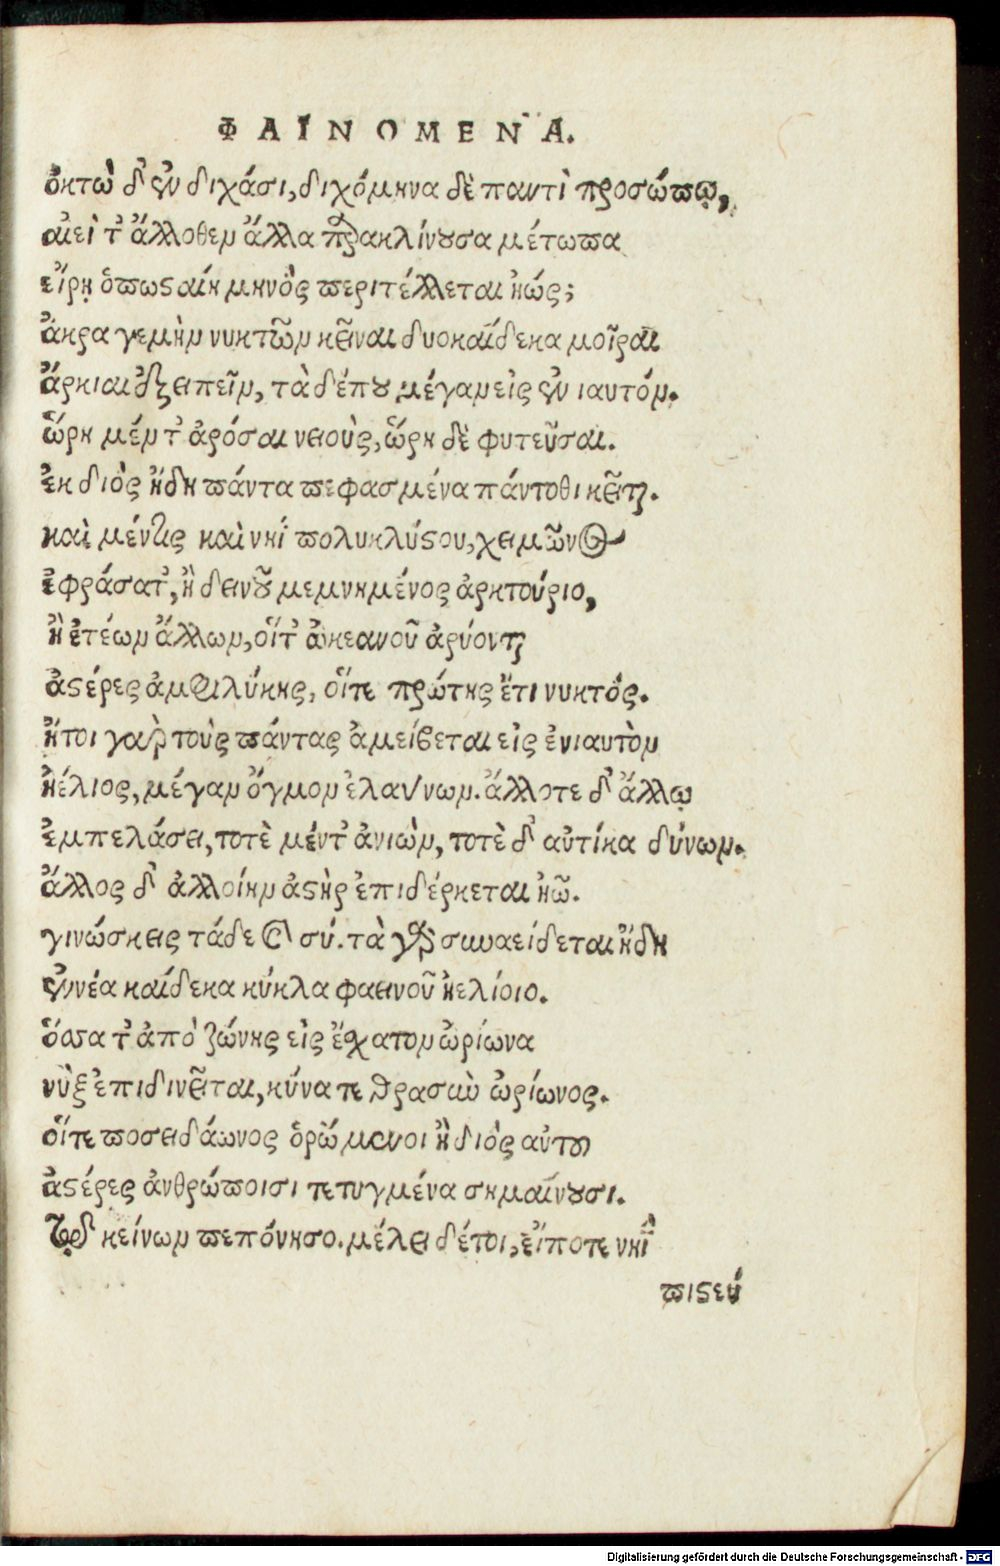 ΦΑΙΝΟΜΕΝΑ.
ὀκτὼ δ᾽ ἐν διχάσι, διχόμηνα δὲ παντὶ προσώπῳ,
αἰεὶ τ᾽ ἄλλοθεν ἄλλα παρακλίνουσα μέτωπα
εἴρῃ ὁπως αἱη μηνὸς περιτέλλεται ἠώς;
ἄκρα γεμὴν νυκτῶν κεῖναι δυοκαίδεκα μοῖραι
ἄρκιαι ἐξειπεῖν, τὰ δέπου μέγαν εἰς ἐνιαυτόν.
ὥρη μέν τ᾽ ἀρόσαι νειοὺς, ὥρη δὲ φυτεῦσαι.
ἐκ διὸς ἤδη πάντα πεφασμένα πάντοθι κεῖται.
καὶ μέν τις καὶ νηῒ πολυκλύστου, χειμῶνος
ἐφράσατ᾽, ἢ δεινοῦ μεμνημένος ἀρκτούριο,
ἢ ἑτέων ἄλλων, οἵτ᾽ ὠκεανοῦ ἀρύονται
ἀστέρες ἀμφιλύκης, οἵτε πρώτης ἔτι νυκτός.
ἤτοι γὰρ τοὺς πάντας ἀμείβεται εἰς ἐνιαυτὸν
ἠέλιος, μέγαν ὄγμον ἐλαύνων. ἄλλοτε δ᾽ ἄλλῳ
ἐμπελάσει, τοτὲ μέντ᾽ ἀνιὼν, τοτὲ δ᾽ αὐτίκα δύνων.
ἄλλος δ᾽ ἀλλοίην ἀστὴρ ἐπιδέρκεται ἠῶ.
γινώσκεις τάδε καὶ σύ. τὰ γὰρ συναείδεται ἤδη
ἐννέα καίδεκα κύκλα φαεινοῦ ἠελίοιο.
ὅσσα τ᾽ ἀπὸ ζώνης εἰς ἔσχατον ὠρίωνα
νὺξ ἐπιδινεῖται, κύνα τε θρασὺν ὠρίωνος.
οἵτε ποσειδάωνος ὁρώμενοι ἢ διὸς αὐτοῦ
ἀστέρες ἀνθρώποισι τετυγμένα σημαίνουσι.
τῷ δ κείνων πεπόνησο. μέλει δέτοι, εἴποτε νηῒ
πιστεύ